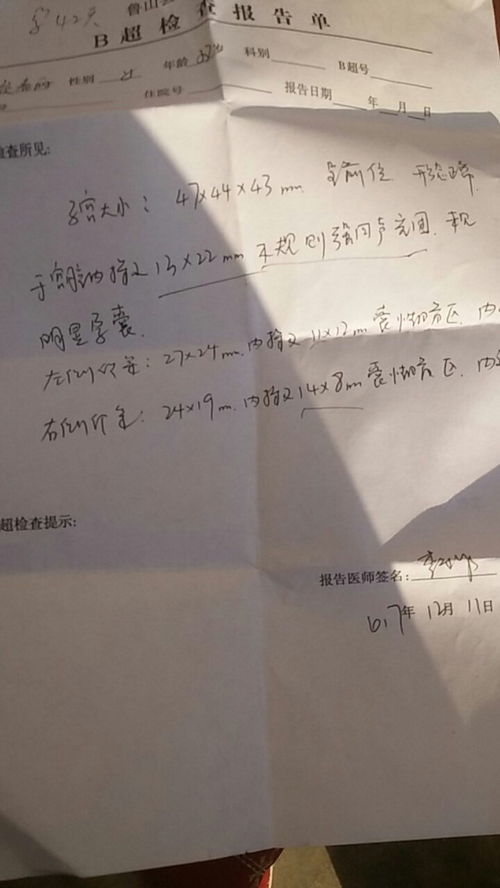 孕42天 鲁山
B超检查报告单
性别 女 年龄 科别 B超号
住院号 报告日期 年 月 日
检查所见:
子宫大小: 47×44×43mm 呈前位 形态正常.
于宫腔内探及13×22mm不规则强回声光团. 未见
明显孕囊.
左侧卵巢: 27×24mm. 内探及11×12m囊性暗区. 内
右侧卵巢: 24×19m. 内探及14×8mm囊性暗区. 内
超检查提示:
报告医师签名:
年 12月 11日